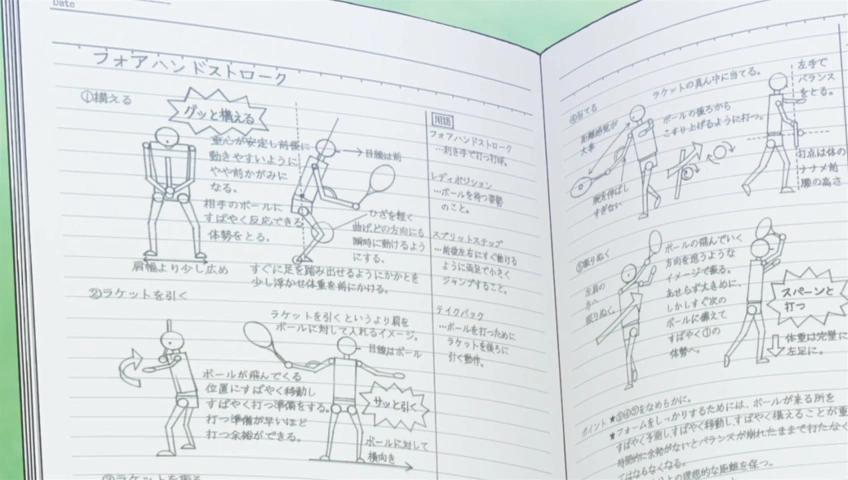 Date
フォアハンドストローク
①構える
グッと構える
重心が安定し前後に
動きやすいように
やや前かがみに
なる。
相手のボールに
すばやく反応できる
体勢をとる。
肩幅より少し広め
→目線は前
ひざを軽く
曲げ、どの方向にも
瞬時に動けるよう
にする。
すぐに足を踏み出せるようにかかとを
少し浮かせ体重を前にかける。
②ラケットを引く
ラケットを引くというより肩を
ボールに対して入れるイメージ。
目線はボール
ボールが飛んでくる
位置にすばやく移動し
すばやく打つ準備をする。
打つ準備が早いほど
打つ余裕ができる。
サッと引く
ボールに対して
横向き
用語
フォアハンドストローク
…利き手で打つ打球。
レディポジション
…ボールを待つ姿勢
のこと。
スプリットステップ
…前後左右にすぐ動ける
ように両足で小さく
ジャンプすること。
テイクバック
…ボールを打つために
ラケットを後ろに
引く動作。
当てる
ラケットの真ん中に当てる。
距離感覚が
大事
ボールの後ろから
こすり上げるように打つ。
腕を伸ばし
すぎない
左手で
バランス
をとる。
打点は体の
ナナメ前
腰の高さ
振りぬく
ボールの飛んでいく
方向を思うような
イメージで振る。
あせらず大きめに、
しかしすぐ次の
ボールに備えて
すばやく①の
体勢へ。
左肩の
方へ
振りぬく。
スパーンと
打つ
体重は完璧に
左足に。
ポイント ★③④⑤をなめらかに。
★フォームをしっかりするためには、ボールが来る所を
すばやく予測し、すばやく移動し、すばやく構えることが重
時間的に余裕がないとバランスが崩れたままで打たなく
てはならなくなる。
理想的な距離を保つ。